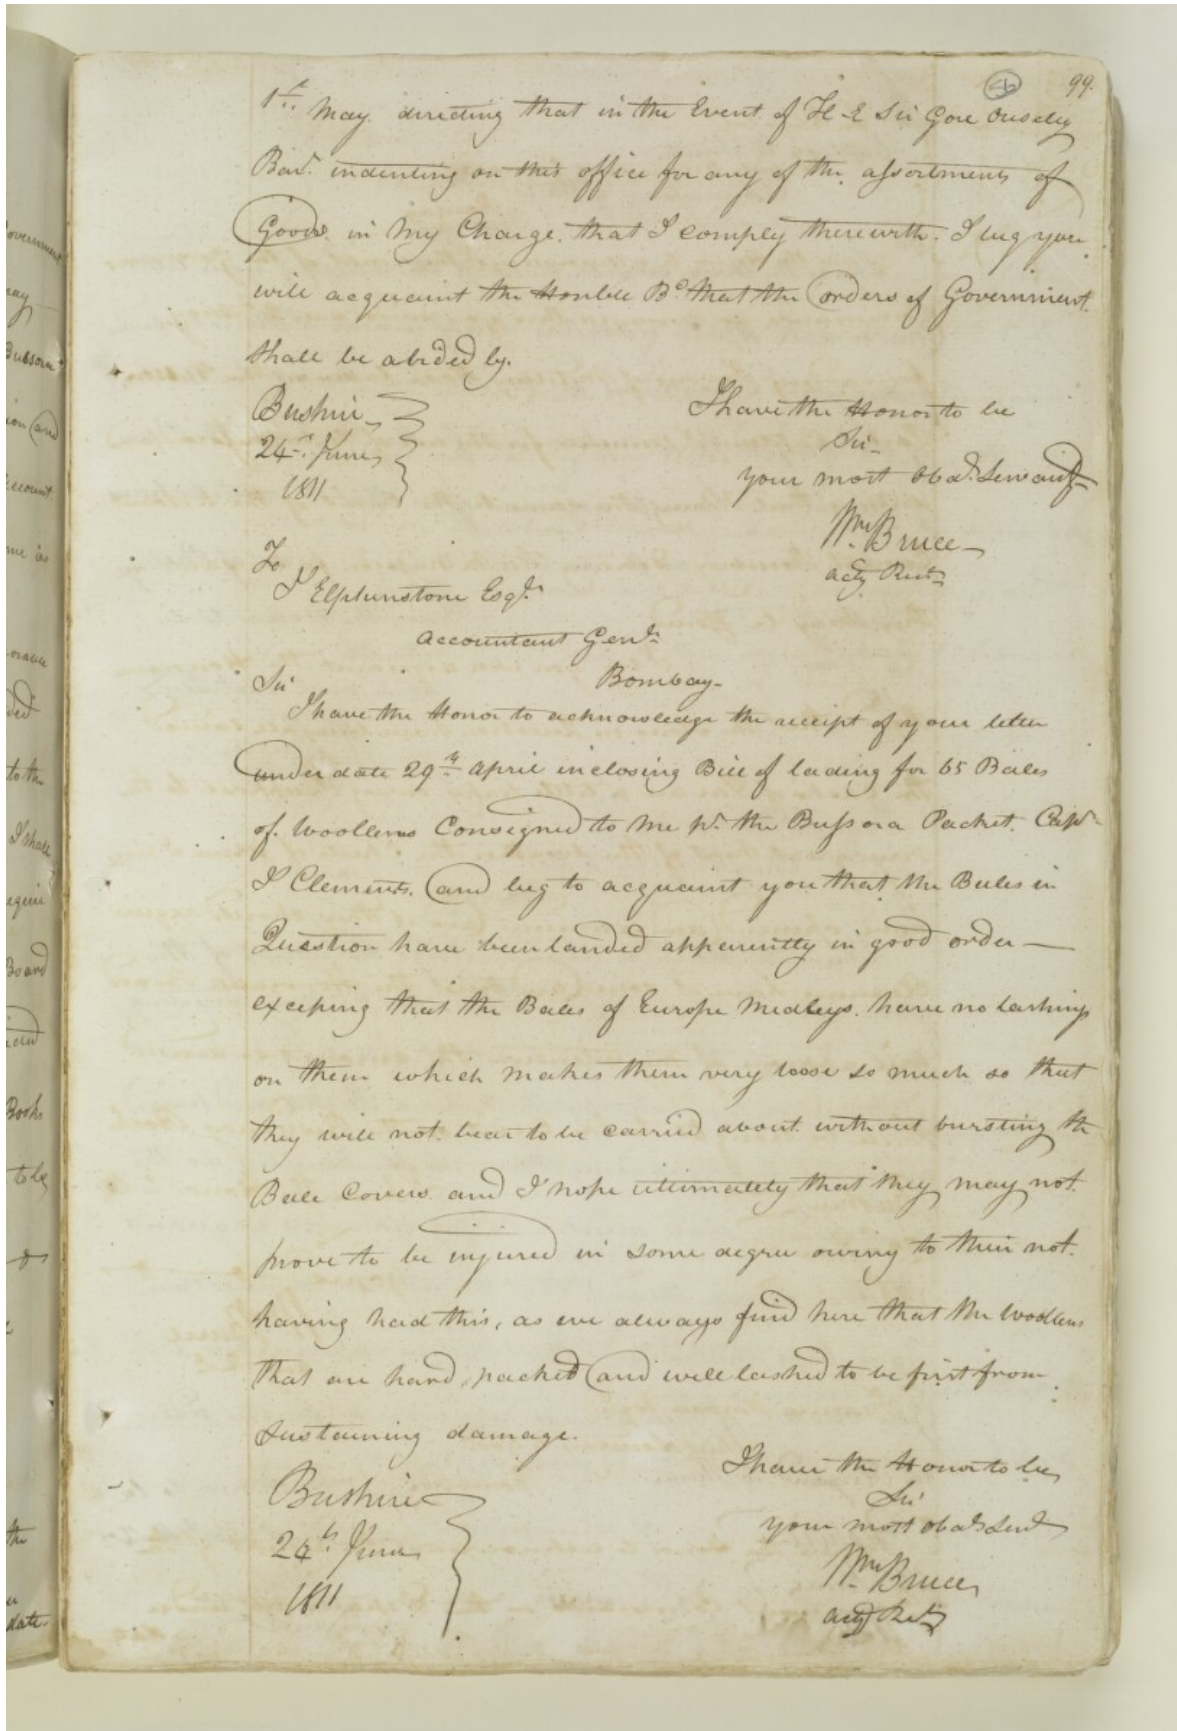 99.
1st. May. directing that in the Event of H-E Sir Gore Ouseley
Bart. indenting on this office for any of the assortments of
Goods in My Charge. that I comply therewith. I beg you
will acquaint the Honble Bd. that the orders of Government.
shall be abided by.
Bushire
24th. June
1811
I have the Honor to be
Sir
your most obdt. Servant
Wm. Bruce
actg Rest.
To
J Elphinstone Esqr.
Accountant Genl.
Bombay
Sir
I have the Honor to acknowledge the receipt of your letter
under date 29th April inclosing Bill of lading for 65 Bales
of Woollens Consigned to me pr. the Bussora Packet. Capt.
I Clements. and beg to acquaint you that the Bales in
Question have been landed apparently in good order—
exceping that the Bales of Europe Medleys. have no lashings
on them which makes them very loose so much so that
they will not bear to be carried about without bursting the
Bale Covers and I hope ultimately that they may not
prove to be injured in some degree owing to their not.
having had this, as we always find here that the Woollens
that are hard packed and well lashed to be first from
sustaining damage.
Bushire
24th. June
1811
I have the Honor to be
Sir
your most obdt Servt
Wm. Bruce
actg Rest.